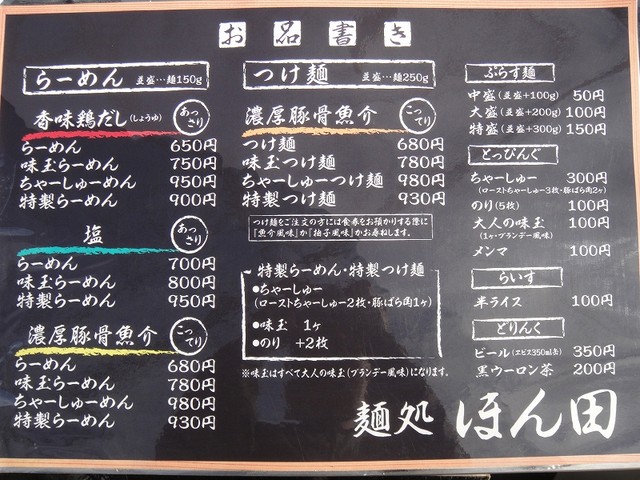 お品書き
らーめん 並盛…麺150g
香味鶏だし(しょうゆ) あっさり
らーめん 650円
味玉らーめん 750円
ちゃーしゅーめん 950円
特製らーめん 900円
塩 あっさり
らーめん 700円
味玉らーめん 800円
特製らーめん 950円
濃厚豚骨魚介 こってり
らーめん 680円
味玉らーめん 780円
ちゃーしゅーめん 980円
特製らーめん 930円
つけ麺 並盛…麺250g
濃厚豚骨魚介 こってり
つけ麺 680円
味玉つけ麺 780円
ちゃーしゅーつけ麺 980円
特製つけ麺 930円
つけ麺をご注文の方には食券をお預かりする際に
『魚介風味』か『柚子風味』かお尋ねします。
特製らーめん・特製つけ麺
●ちゃーしゅー
(ローストちゃーしゅー2枚・豚ばら肉1ヶ)
●味玉 1ヶ
●のり +2枚
※味玉はすべて大人の味玉(ブランデー風味)になります。
ぷらす麺
中盛(並盛+100g) 50円
大盛(並盛+200g) 100円
特盛(並盛+300g) 150円
とっぴんぐ
ちゃーしゅー 300円
(ローストちゃーしゅー3枚・豚ばら肉2ヶ)
のり(5枚) 100円
大人の味玉 100円
(1ヶ・ブランデー風味)
メンマ 100円
らいす
半ライス 100円
どりんく
ビール(ヱビス350ml缶) 350円
黒ウーロン茶 200円
麺処 ほん田